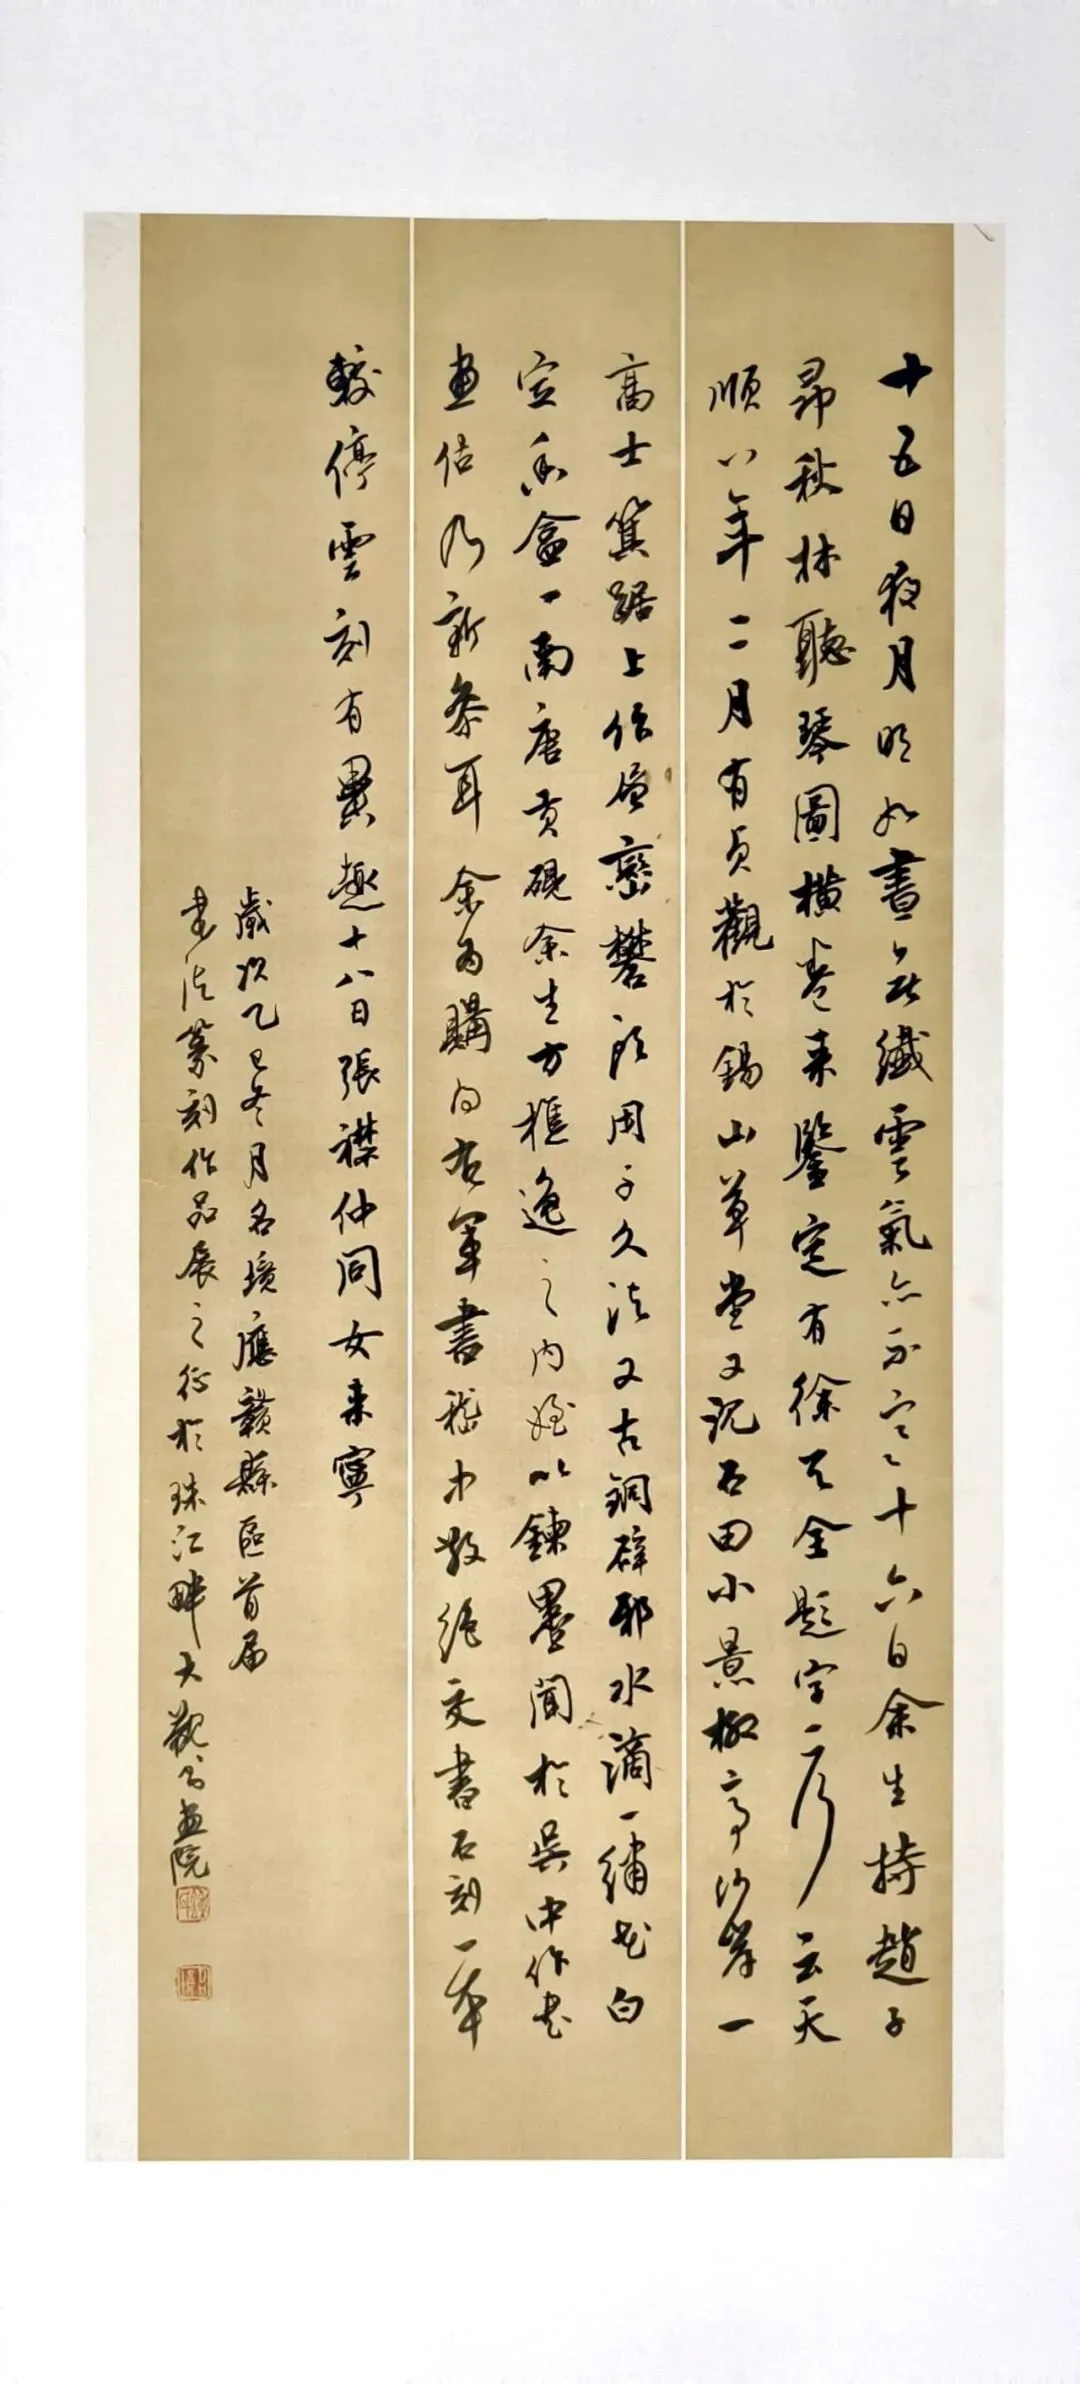 十五日夜月明如晝無纖雲氣亦不寒十六日余生持趙子
昂秋林聽琴圖橫卷来鑒定有徐天全題字一行云天
順八年二月有貞觀於錫山草堂又沈石田小景椒亭沙岸一
高士箕踞上作層巒礬頭用子久法又古銅辟邪水滴一繡花白
定香盒一南唐貢硯余生方樵逸之内姪以鍊墨聞於吳中作書
畫估乃新參耳余為購得右軍書嵇中散絕交書石刻一本
較停雲刻有異趣十八日張襟仲同女来寧
歲次乙巳冬月名境應贛縣區首届
書法篆刻作品展之征於珠江畔大觀書畫院